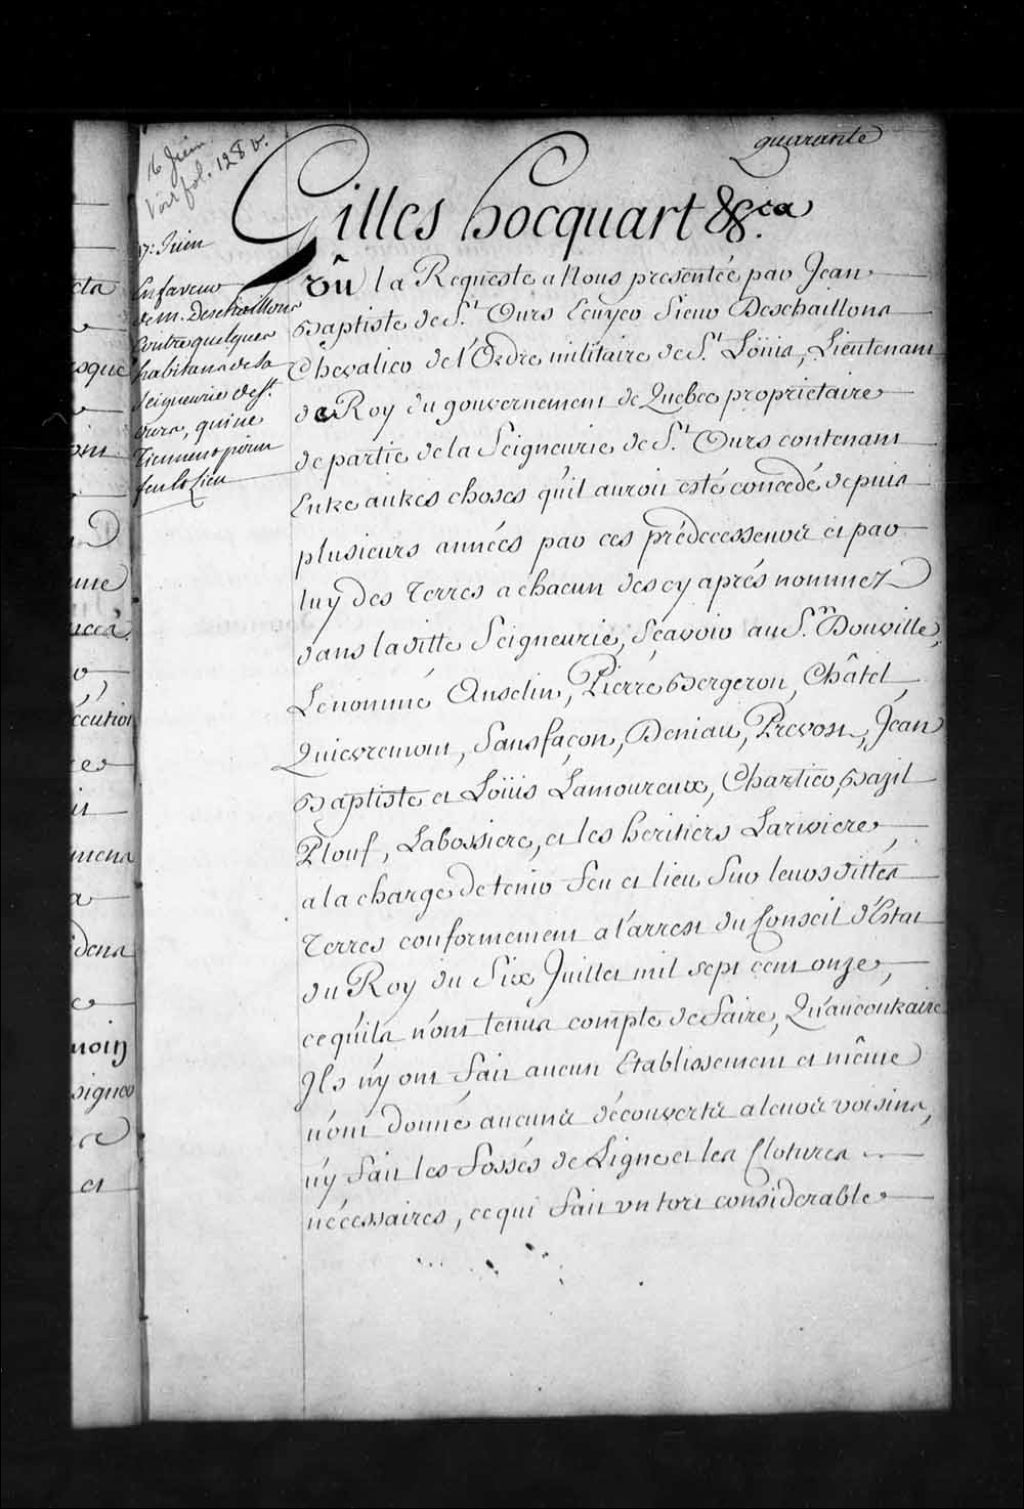 quarante
16 Juin
Voir fol. 128 v.
17: Juin
En faveur
de M. Deschaillons
Contre quelques
habitans de la
Seigneurie de St.
Ours, qui ne
Tiennent point
feu et Lieu
Gilles hocquart &.ca
Vû la Requeste a Nous presentée par Jean
Baptiste de S.t Ours Ecuyer Sieur Deschaillons
Chevalier de l'Ordre militaire de S.t Loüis, Lieutenant
de Roy du gouvernement de Quebec proprietaire
de partie de la Seigneurie de S.t Ours contenant
Entre autres choses qu'il auroit esté concedé depuis
plusieurs années par ces prédecesseurs et par
luy des Terres a chacun des cy aprés nommez
dans la ditte Seigneurie, Sçavoir au S.r Douville,
Le nommé Anselin, Pierre Bergeron, Châtel
Quievremont, Sansfaçon, Deniau, Prevost, Jean
Baptiste et Loüis Lamoureux, Chartier, Bazil
Plouf, Labossiere, et les heritiers Lariviere,
a la charge de tenir feu et lieu Sur leurs dittes
Terres conformement a l'arrest du Conseil d'Estat
du Roy du Six Juillet mil sept cent onze,
ce qu'ils n'ont tenus compte de faire, Qu'au contraire
Ils n'y ont fait aucun Etablissement et même
n'ont donné aucunes découvertes a leurs voisins,
n'y fait les fossés de Ligne et les Clotures
nécessaires, ce qui fait un tort considerable
cta
me
cution
mens
dens
ce
moin
signer
et